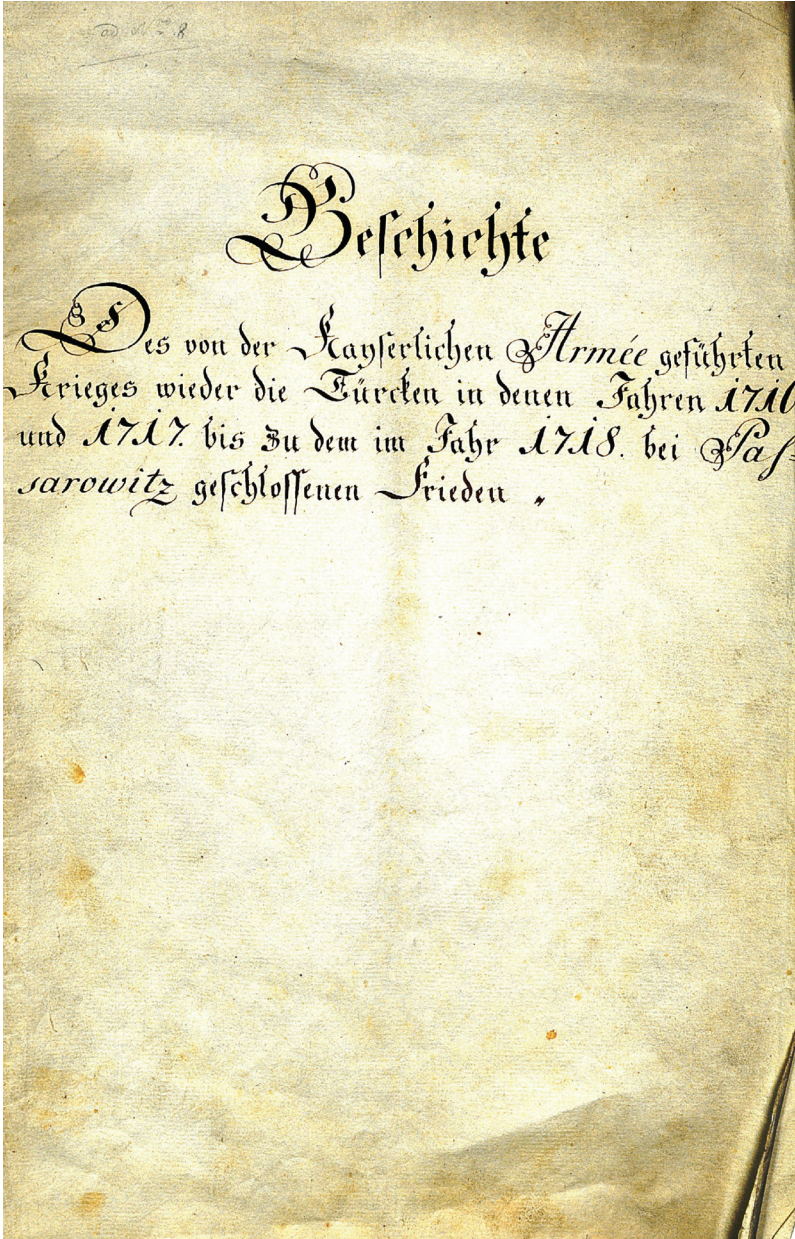 ad N 8
Geschichte
Des von der Kayserlichen Armée geführten
Krieges wieder die Türcken in denen Jahren 1716
und 1717. bis zu dem im Jahr 1718. bei Pas-
sarowitz geschlossenen Frieden